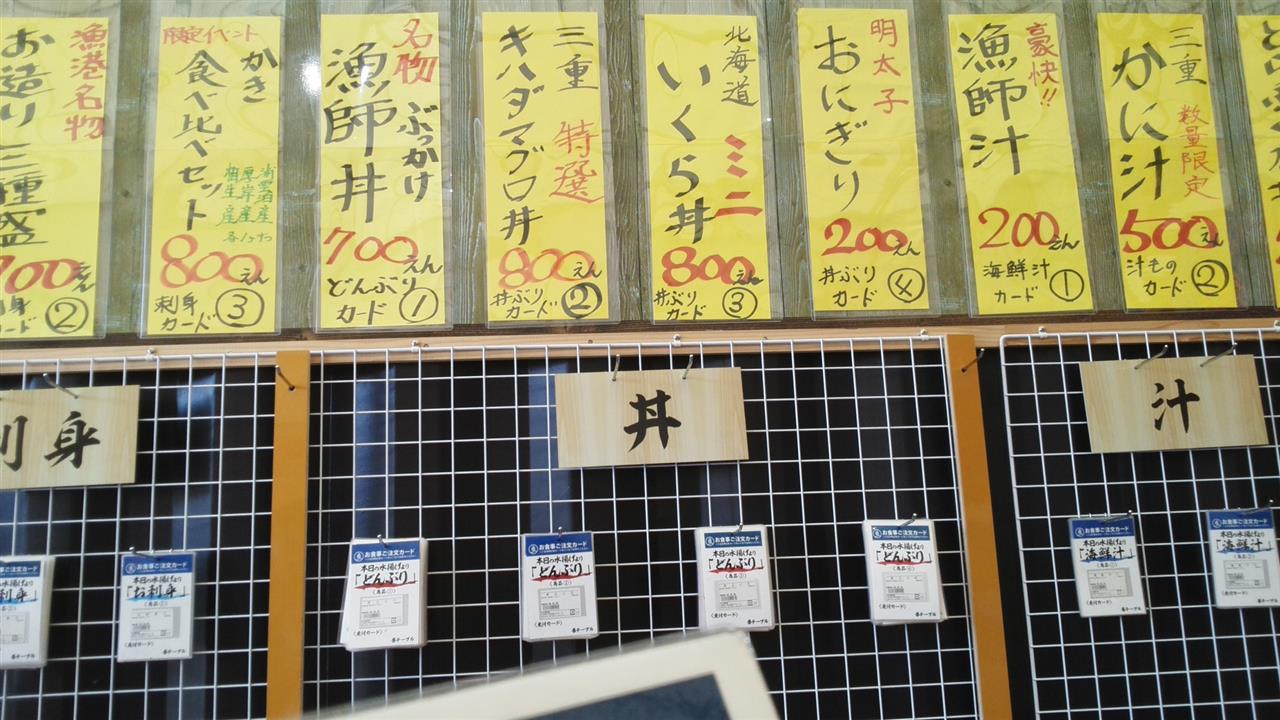 漁港名物
お造り三種盛
700えん
刺身
カード②
限定イベント
かき
食べ比べセット
厚岸産
相生産
800えん
刺身
カード③
名物
ぶっかけ
漁師丼
700えん
どんぶり
カード①
三重
特選
キハダマグロ丼
800えん
丼ぶり
カード②
北海道
ミニ
いくら丼
800えん
丼ぶり
カード③
明太子
おにぎり
200えん
丼ぶり
カード④
豪快!!
漁師汁
200えん
海鮮汁
カード①
三重
数量限定
かに汁
500えん
汁もの
カード②
刺身
丼
汁
お刺身
お食事ご注文カード
本日の水揚げより
「お刺身」
(受付カード)
番テーブル
お食事ご注文カード
本日の水揚げより
「どんぶり」
(商品①)
(受付カード)
番テーブル
お食事ご注文カード
本日の水揚げより
「どんぶり」
(商品②)
(受付カード)
番テーブル
お食事ご注文カード
本日の水揚げより
「どんぶり」
(商品③)
(受付カード)
番テーブル
お食事ご注文カード
本日の水揚げより
「どんぶり」
(商品④)
(受付カード)
番テーブル
お食事ご注文カード
本日の水揚げより
「海鮮汁」
(商品①)
(受付カード)
番テーブル
お食事ご注文カード
本日の水揚げより
「海鮮汁」